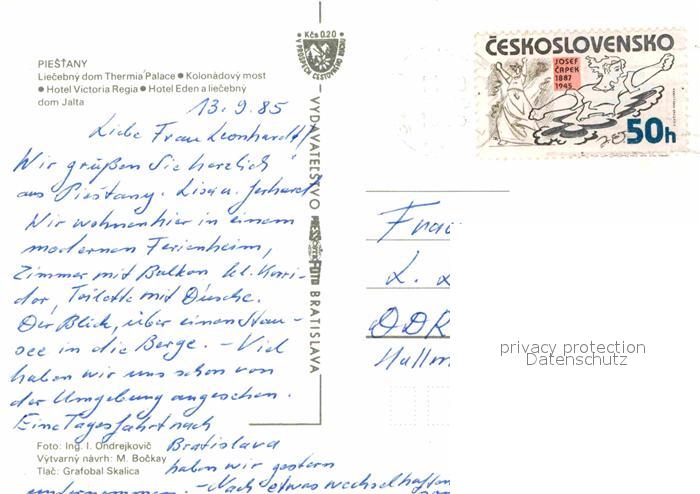 PIEŠŤANY
Liečebný dom Thermia Palace ● Kolonádový most
● Hotel Victoria Regia ● Hotel Eden a liečebný
dom Jalta
13.9.85
Liebe Frau Leonhardt!
Wir grüßen Sie herzlich
aus Piešťany. Lisa u. Gerhard
Wir wohnen hier in einem
modernen Ferienheim,
Zimmer mit Balkon kl. Korri-
dor, Toilette mit Dusche.
Der Blick, über einen Stau-
see in die Berge. – Viel
haben wir uns schon von
der Umgebung angesehen.
Eine Tagesfahrt nach
Bratislava
haben wir gestern
unternommen. – Nach etwas wechselhaftem
Foto: Ing. I. Ondrejkovič
Výtvarný návrh: M. Bočkay
Tlač: Grafobal Skalica
Kčs 0.20
VYDAVATEĽSTVO
BRATISLAVA
ČESKOSLOVENSKO
JOSEF
ČAPEK
1887
1945
50h
Frau
L. L
DDR
privacy protection
Datenschutz